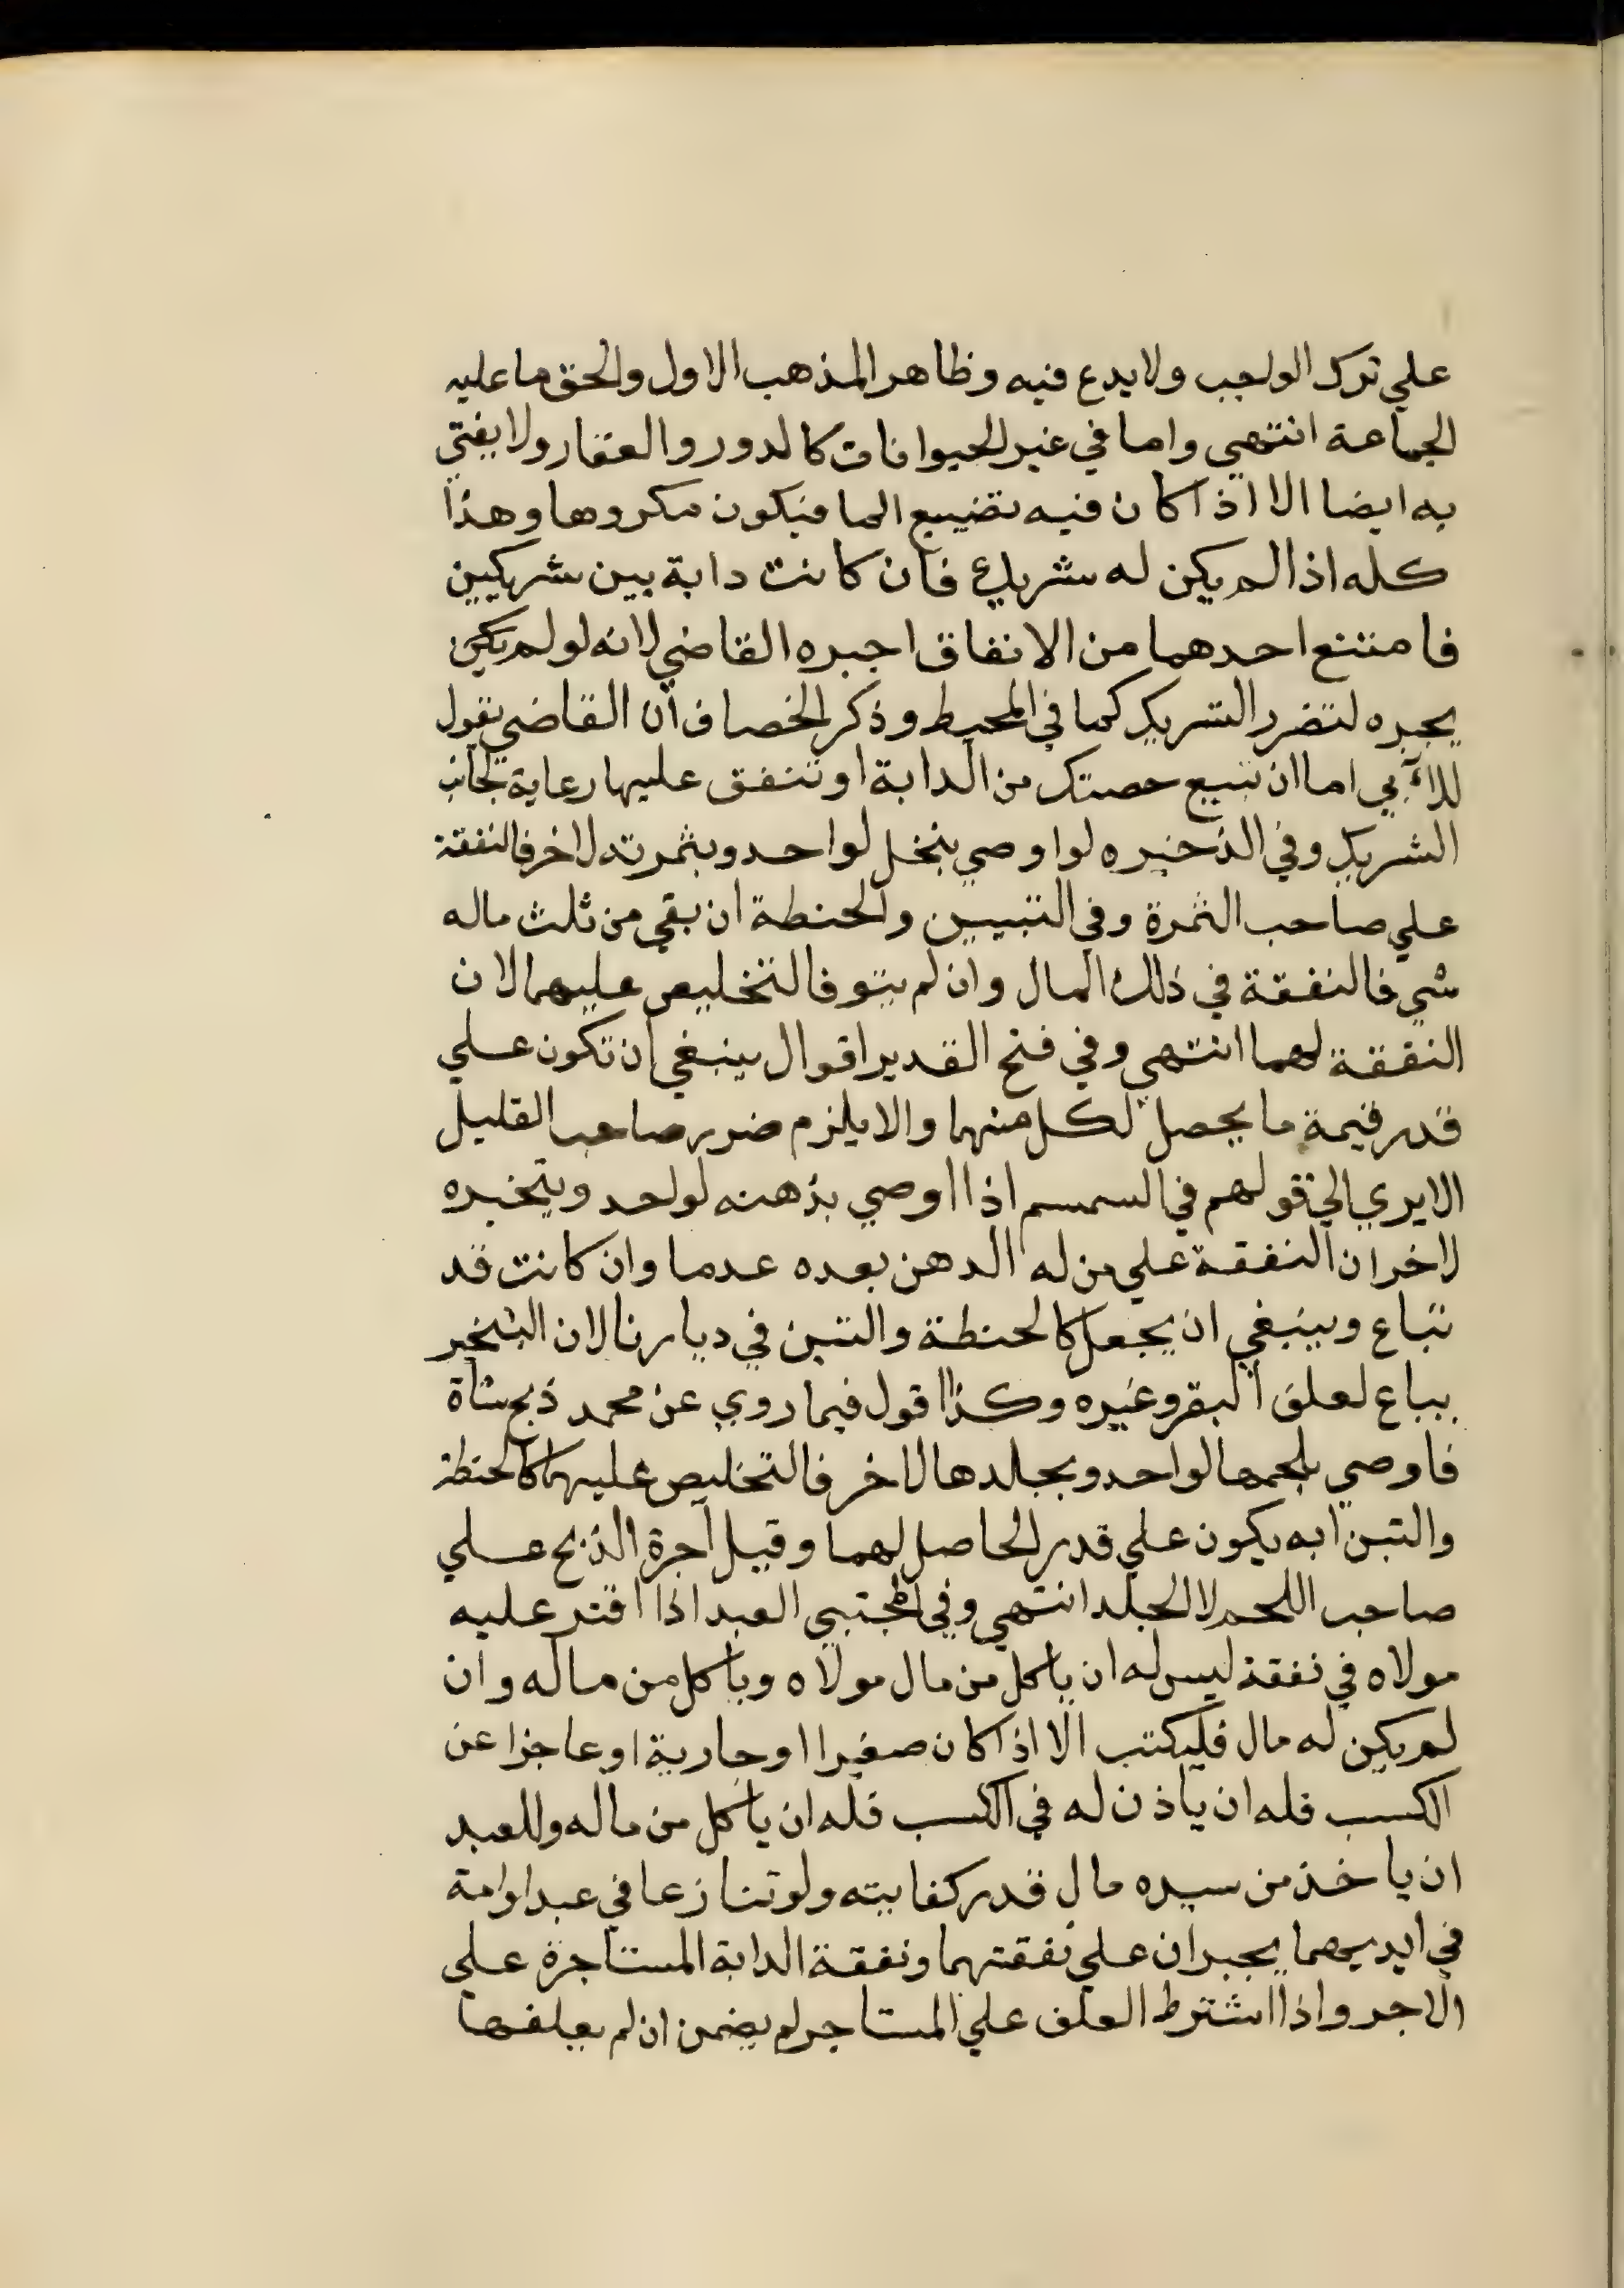 علي ترك الواجب ولا يدع فيه وظاهر المذهب الاول والحق ما عليه
الجماعة انتهي واما في غير الحيوانات كالدور والعقار ولا يفتي
به ايضا الا اذا كان فيه تضييع الما فيكون مكروها وهذا
كله اذا لم يكن له شريك فان كانت دابة بين شريكين
فامتنع احدهما من الانفاق اجبره القاضي لانه لو لم يكن
يجبره لتضرر الشريك كما في المحيط وذكر الخصاف ان القاضي يقول
للآبي اما ان تبيع حصتك من الدابة او تنفق عليها رعاية لجانب
الشريك وفي الذخيره لو اوصي بنخل لواحد وبثمرته لاخر فالنفقة
علي صاحب الثمرة وفي التبيين والحنطة ان بقي من ثلث ماله
شي فالنفقة في ذلك المال وان لم يبق فالتخليص عليهما لان
النفقة لهما انتهي وفي فتح القدير اقوال ينبغي ان تكون علي
قدر قيمة ما يحصل لكل منهما والا يلزم ضرر صاحب القليل
الا يري الي قولهم في السمسم اذا اوصي بدهنه لواحد وبثخيره
لاخر ان النفقة علي من له الدهن بعده عدما وان كانت قد
تباع وينبغي ان يجعل كالحنطة والتبن في ديارنا لان الثخير
يباع لعلف البقر وغيره وكذا اقول فيما روي عن محمد ذبح شاة
فاوصي بلحمها لواحد وبجلدها لاخر فالتخليص عليهما كالحنطة
والتبن انه يكون علي قدر الحاصل لهما وقيل اجرة الذبح علي
صاحب اللحم لا الجلد انتهي وفي المجتبي العبد اذا اقتر عليه
مولاه في نفقة ليس له ان ياكل من مال مولاه وياكل من ماله وان
لم يكن له مال فليكتب الا اذا كان صغيرا او جارية او عاجزا عن
الكسب فله ان ياذن له في الكسب فله ان ياكل من ماله وللعبد
ان ياخذ من سيده مال قدر كفايته ولو تنازعا في عبد او امة
في ايديهما يجبران علي نفقتهما ونفقة الدابة المستاجرة علي
الاجر واذا اشترط العلف علي المستاجر لم يضمن ان لم يعلفها